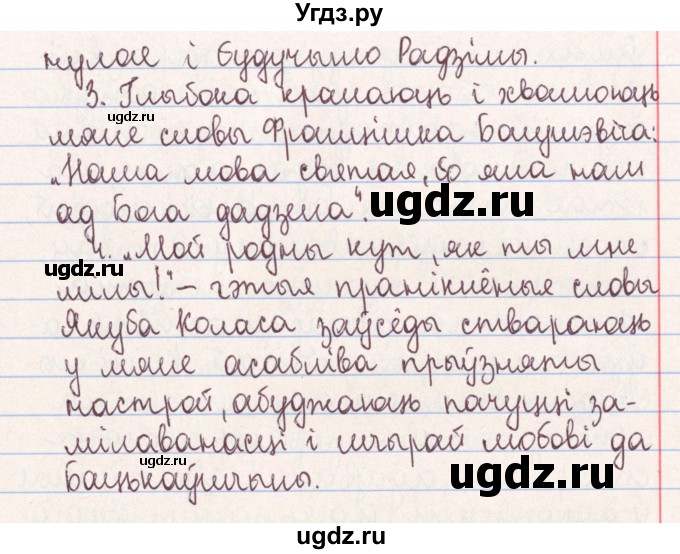 Угдз.ру
нулае і будучыню Радзімы.
3. Глыбока кранаюць і хвалююць
мяне словы Францішка Багушэвіча:
„Наша мова святая, бо яна нам
ад Бога дадзена".
4. „Мой родны кут, як ты мне
мілы!" – гэтыя пранікнёныя словы
Якуба Коласа заўсёды ствараюць
у мяне асабліва прыўзняты
настрой, абуджаюць пачуцці за-
мілаванасці і шчырай любові да
Бацькаўшчыны.
ugdz.ru
ugdz.ru
ugdz.ru
ugdz.ru
ugdz.ru
ugdz.ru
ugdz.ru
Угдз.ру